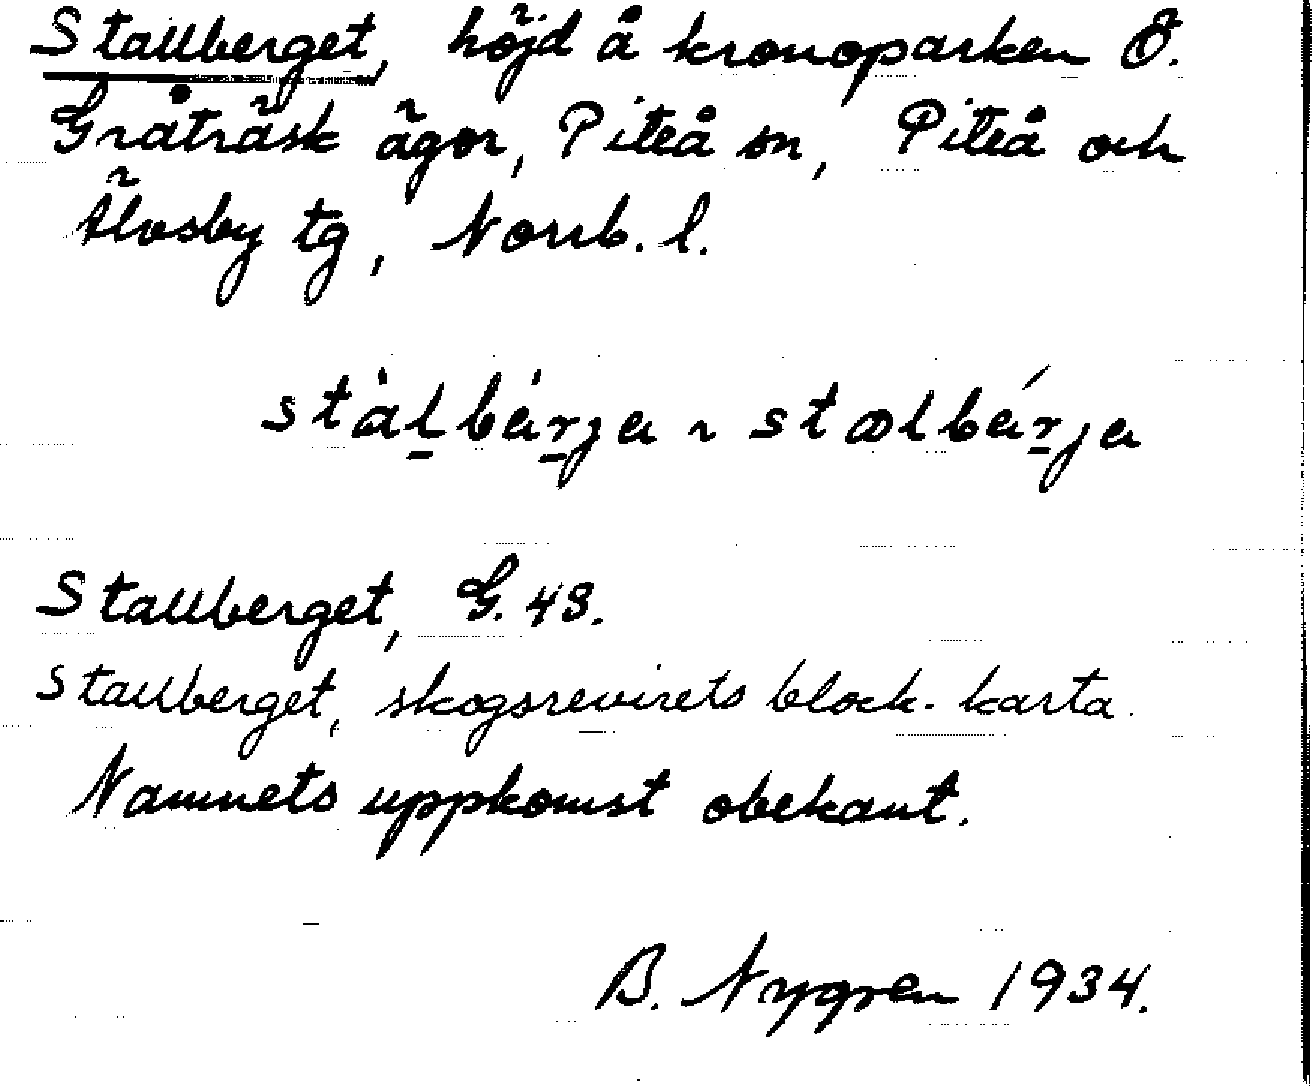 Stallberget, höjd å kronoparken Ö.
Gråträsk ägor, Piteå sn, Piteå och
Älvsby tg, Norrb. l.
stàl̠bár̠ja ~ stælbár̠ja
Stallberget, G. 43.
Stallberget, skogsrevirets block-karta.
Namnets uppkomst obekant.
B. Nygren 1934.